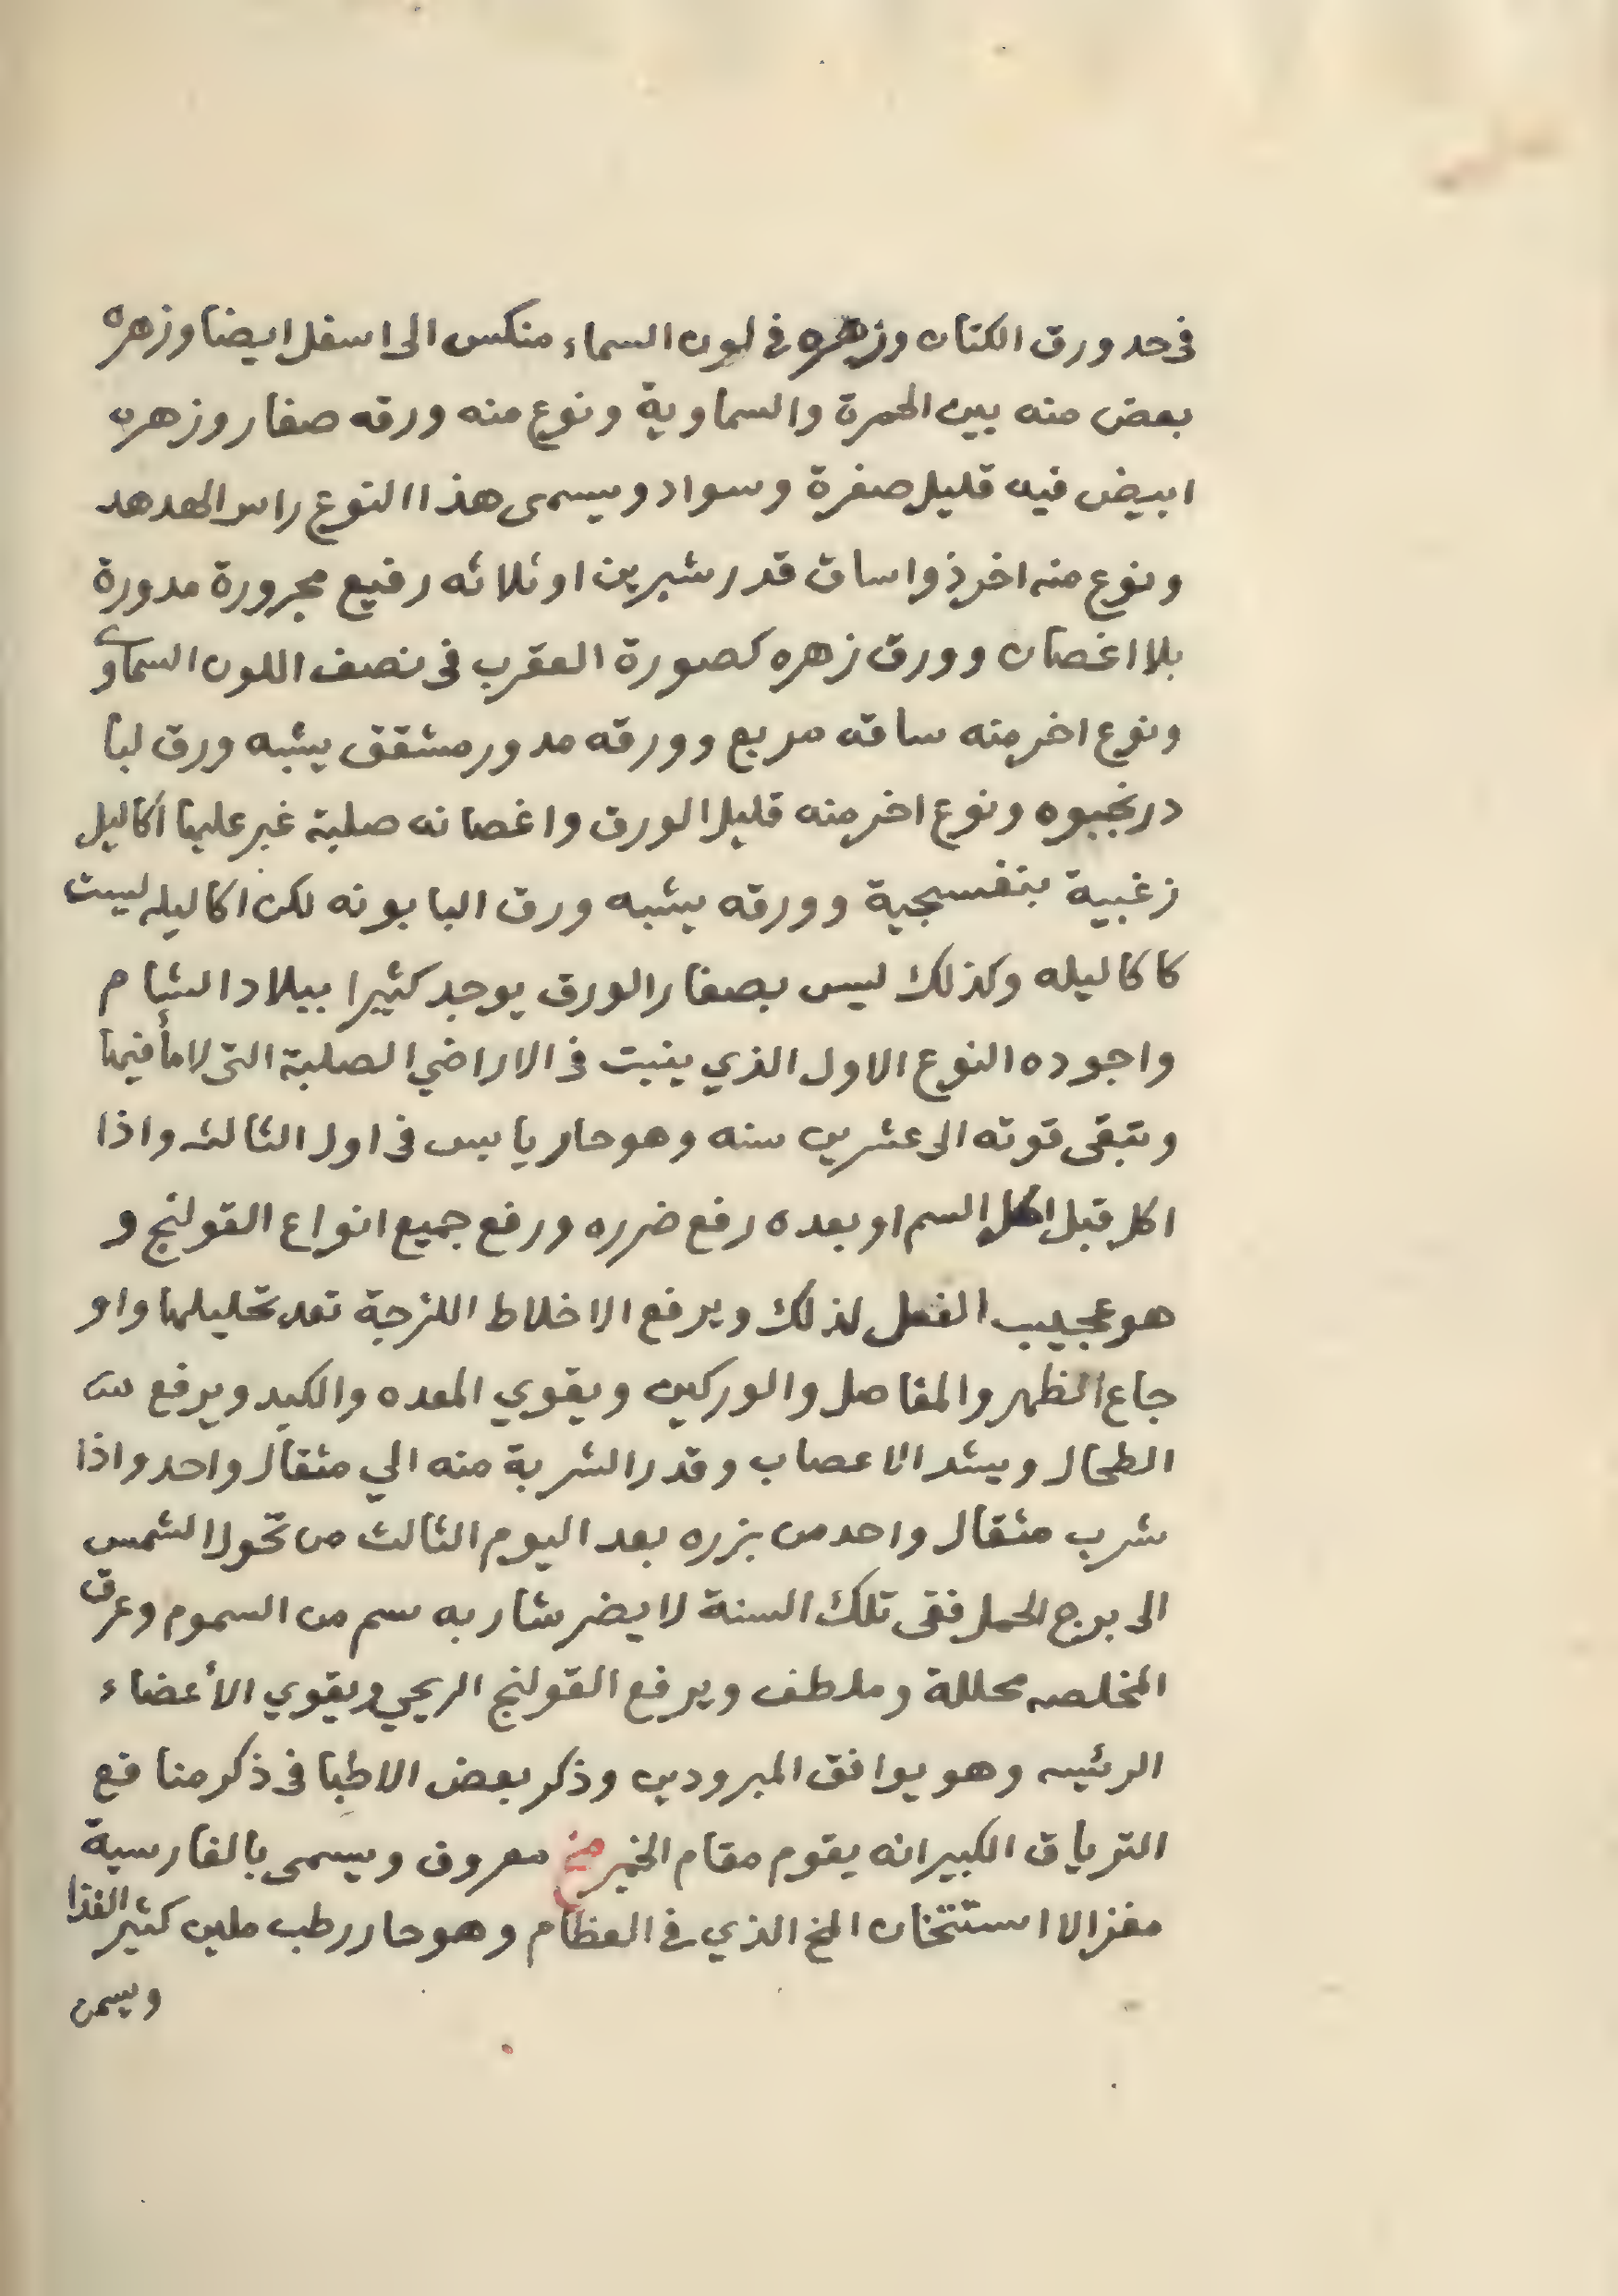 فى حد ورق الكتان وزهره فى لون السماء منكس الى اسفل ايضا وزهره
بعض منه بين الحمرة والسماوية ونوع منه ورقه صغار وزهره
ابيض فيه قليل صفرة وسواد ويسمى هذا النوع راس الهدهد
ونوع منه اخر ذوا ساق قدر شبرين او ثلاثه رفيع مجرورة مدورة
بلا اغصان وورق زهره كصورة العقرب فى نصف اللون السماوي
ونوع اخر منه ساقه مربع وورقه مدور مشقق يشبه ورق لبا
درنجبوه ونوع اخر منه قليل الورق واغصانه صلبة غبر عليها اكاليل
زغبية بنفسجية وورقه يشبه ورق البابونه لكن اكاليله ليست
كاكاليله وكذلك ليس بصغار الورق يوجد كثيرا ببلاد الشام
واجوده النوع الاول الذي ينبت فى الاراضي الصلبة التى لا مأ فيها
وتبقى قوته الى عشرين سنه وهو حار يابس فى اول الثالثه واذا
اكل قبل اكل السم او بعده رفع ضرره ورفع جميع انواع القولنج و
هو عجيب الفعل لذلك ويرفع الاخلاط اللزجة تعد تحليلها واو
جاع الظهر والمفاصل والوركين ويقوي المعده والكبد ويرفع
الطحال ويشد الاعصاب وقدر الشربة منه الي مثقال واحد واذا
شرب مثقال واحد من بزره بعد اليوم الثالث من تحول الشمس
الى برج الحمل ففى تلك السنة لا يضر شاربه سم من السموم وعرق
المخلصه محللة وملطف ويرفع القولنج الريحي ويقوي الأعضاء
الرئيسه وهو يوافق المبرودين وذكر بعض الاطبا فى ذكر منافع
الترياق الكبير انه يقوم مقام الخمير مخ معروف ويسمى بالفارسية
مغز الا استتخان المخ الذي فى العظام وهو حار رطب ملين كثير الغذا
ويسمن